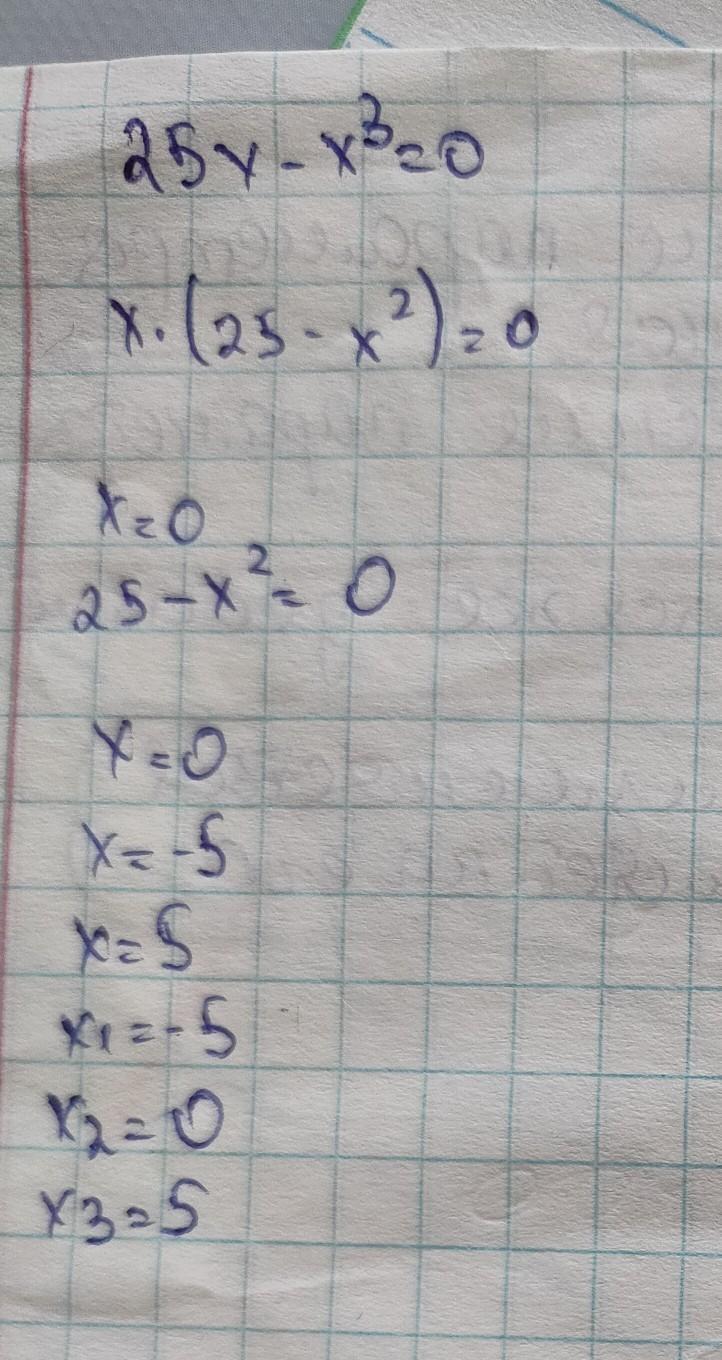 25x - x³ = 0
x · (25 - x²) = 0
x = 0
25 - x² = 0
x = 0
x = -5
x = 5
x₁ = -5
x₂ = 0
x₃ = 5